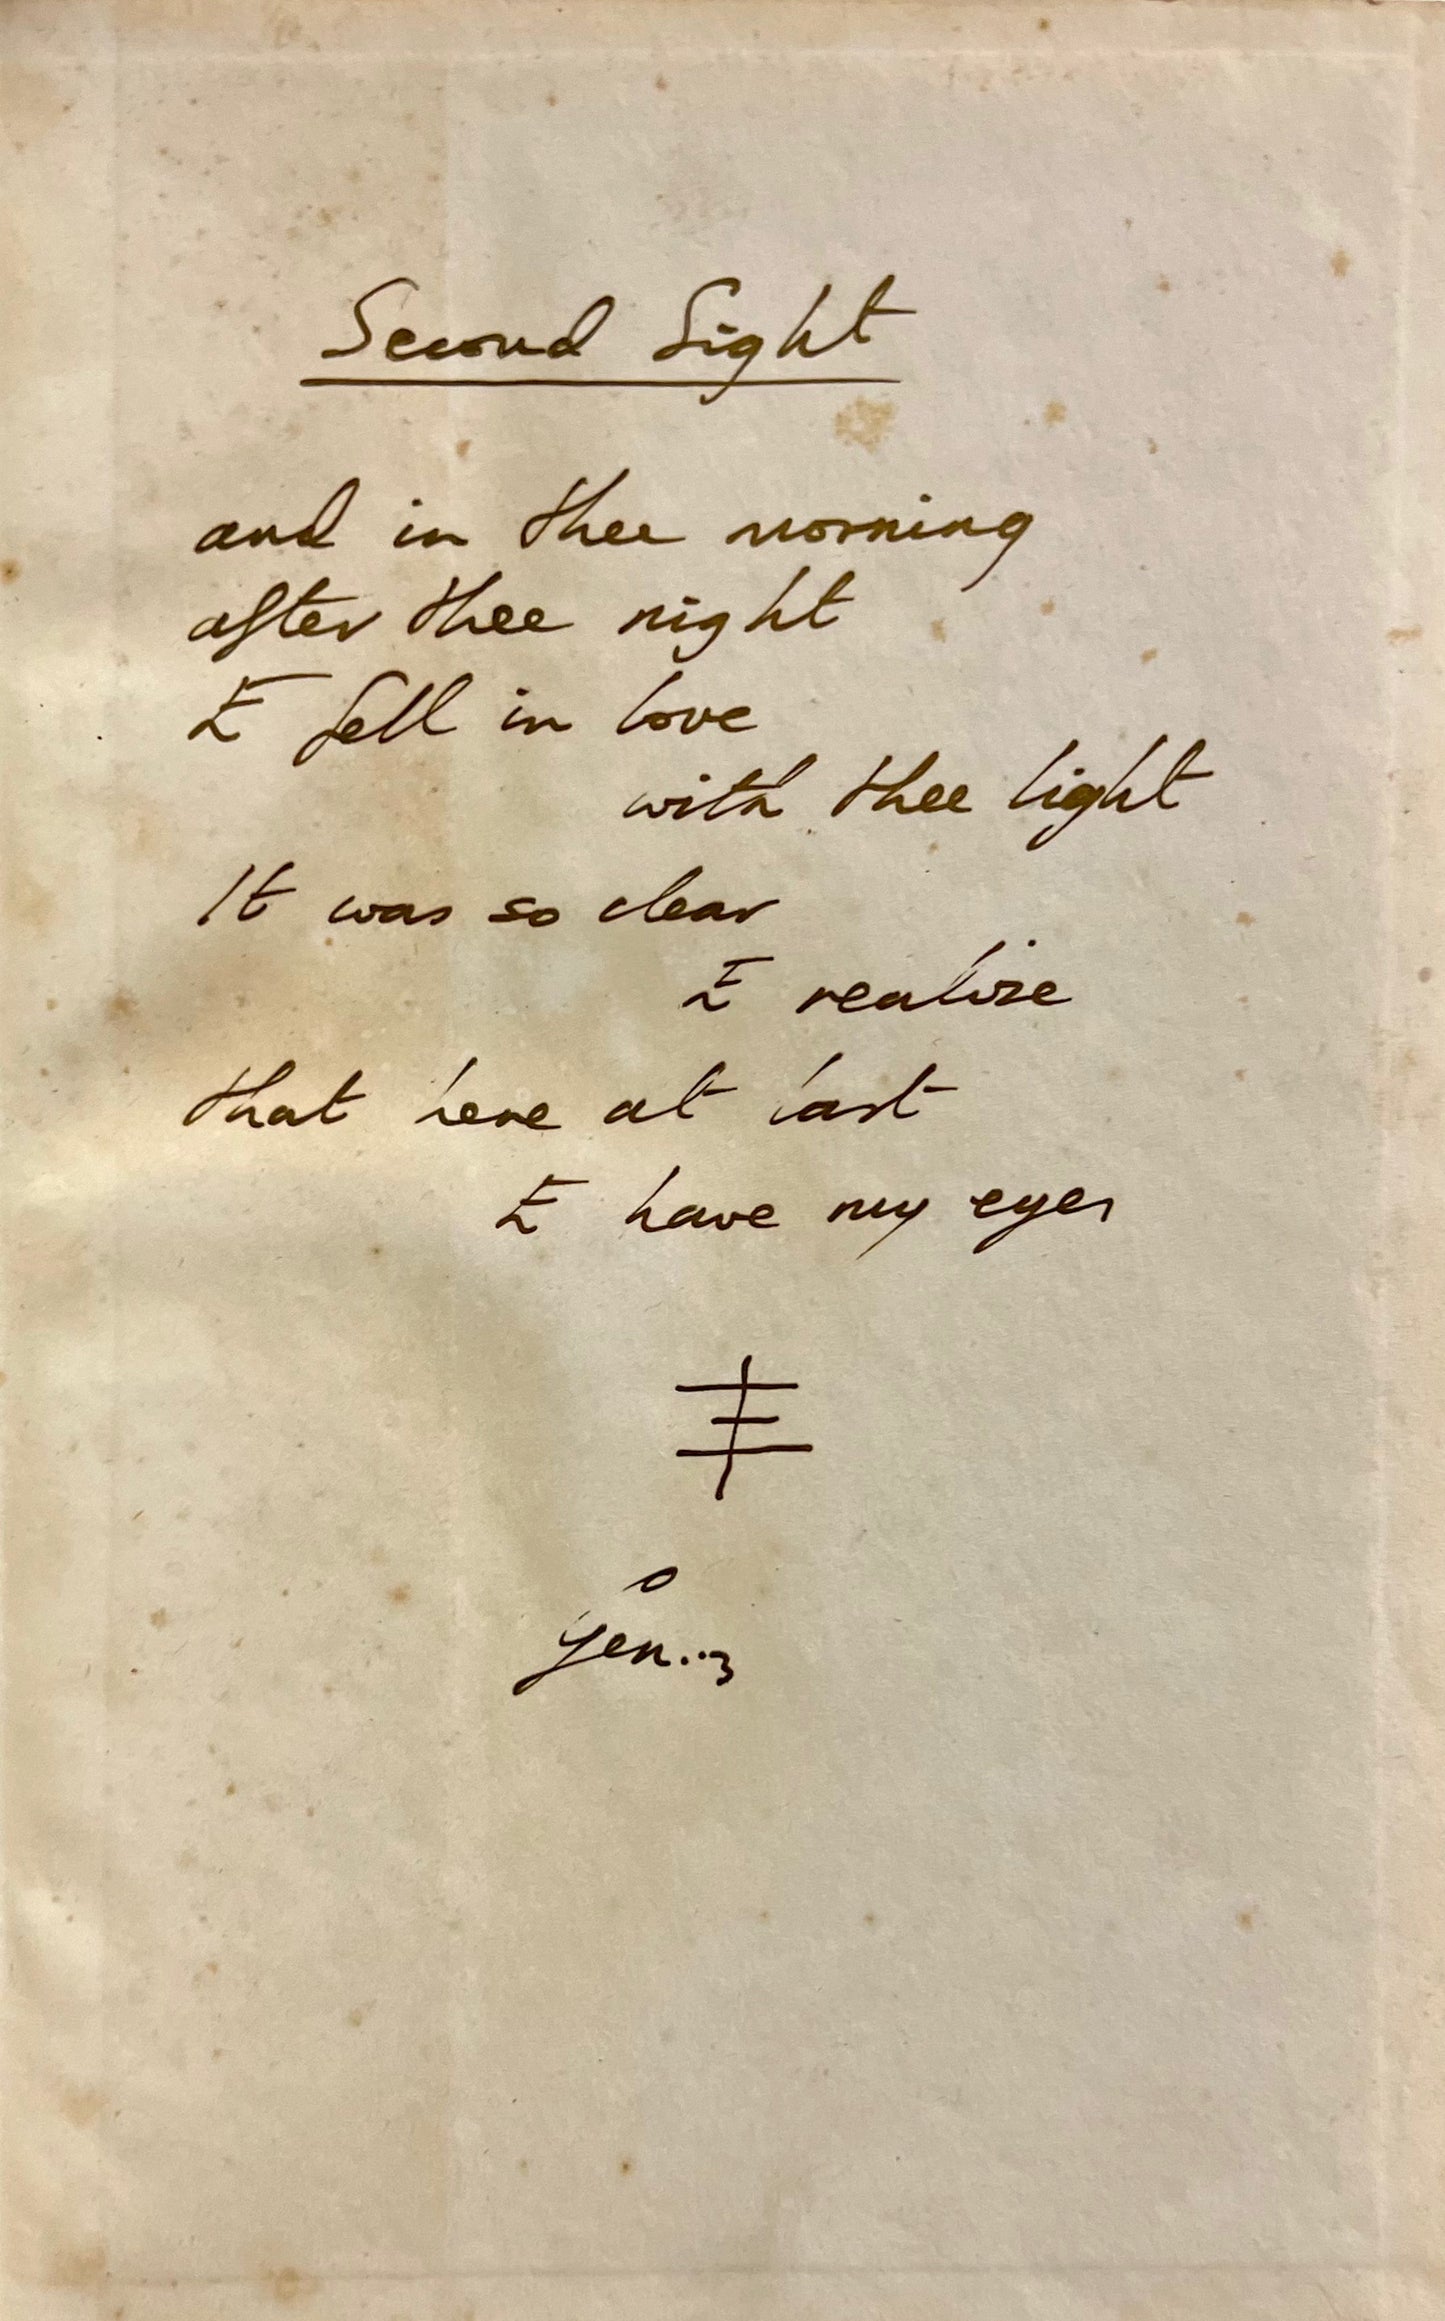 Second Sight
and in thee morning
after thee night
I fell in love
with thee light
It was so clear
I realise
that here at last
I have my eyes
Gen...